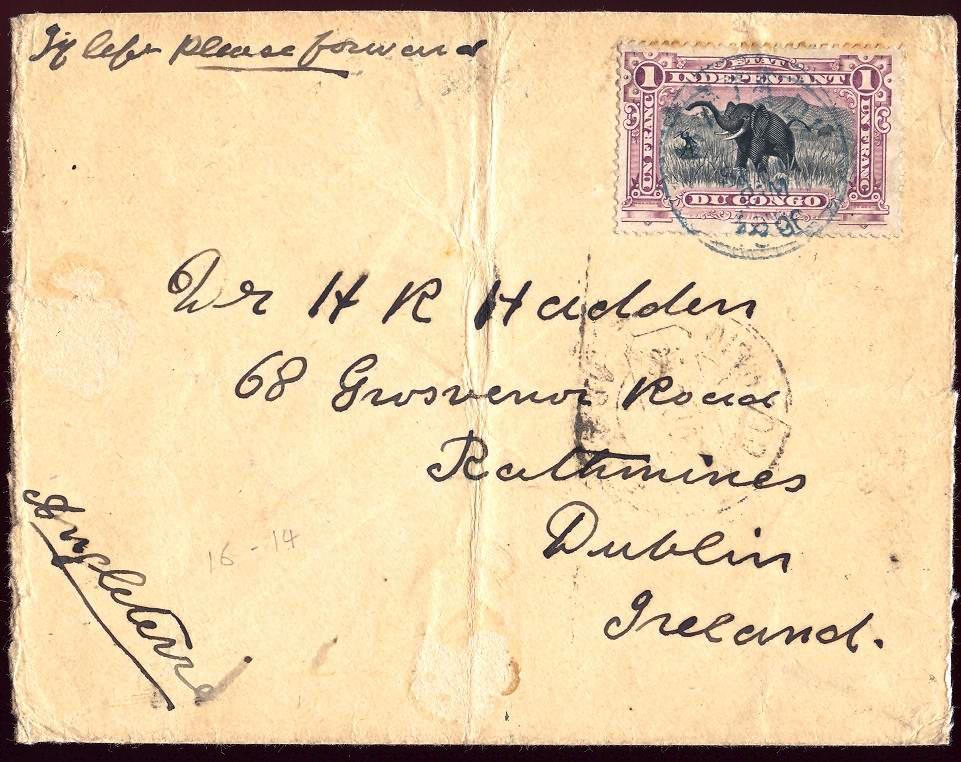 If left please forward
ETAT
1 INDEPENDANT 1
UN FRANC
UN FRANC
DU CONGO
Mr H R Hadden
68 Grosvenor Road
Rathmines
Dublin
Ireland.
Angleterre
16-14